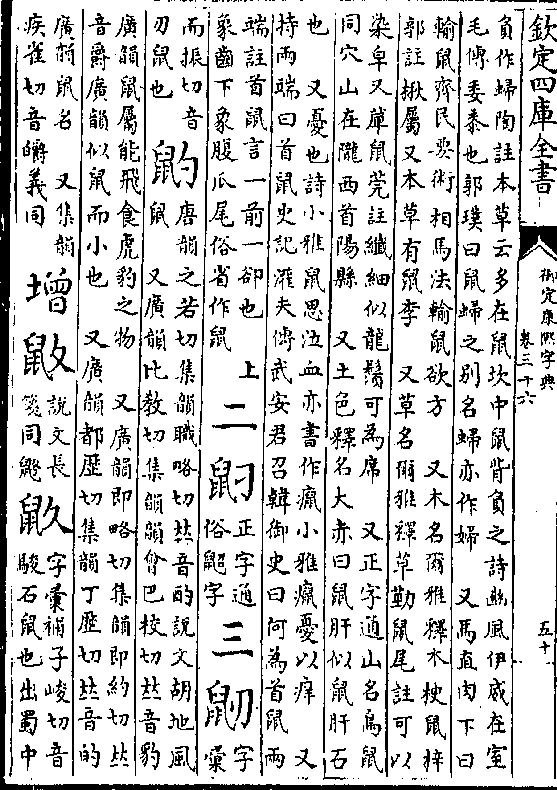 欽定四庫全書
御定康熙字典
卷三十六
五十
負作婦陶註本草云多在鼠坎中鼠背負之詩豳風伊威在室
毛傳委黍也郭璞曰鼠婦之别名婦亦作婦 又馬直肉下曰
輸鼠齊民要術相馬法輸鼠欲方 又木名爾雅釋木梗鼠梓
郭註楸屬又本草有鼠李 又草名爾雅釋草勤鼠尾註可以
染皁又䕞鼠莞註纖細似龍鬚可為席 又正字通山名鳥鼠
同穴山在隴西首陽縣 又土色釋名大赤曰鼠肝似鼠肝石
也 又憂也詩小雅鼠思泣血亦書作癙小雅癙憂以痒 又
持兩端曰首鼠史記灌夫傳武安君召韓御史曰何為首鼠兩
端註首鼠言一前一卻也 上
象齒下象腹爪尾俗省作鼠
二 ⿰鼠刁 正字通
俗鼦字
三 ⿰鼠刃 字
彙
而振切音
刃鼠也
䶂 唐韻之若切集韻職略切𠀤音酌說文胡地風
鼠 又廣韻比教切集韻韻會巴校切𠀤音豹
廣韻鼠屬能飛食虎豹之物 又廣韻即略切集韻即約切𠀤
音爵廣韻似鼠而小也 又廣韻都歷切集韻丁歷切𠀤音的
廣韻鼠名 又集韻
疾雀切音皭義同
增 ⿰鼠攵 說文長
箋同鼨
⿰鼠久 字彙補子峻切音
駿石鼠也出蜀中